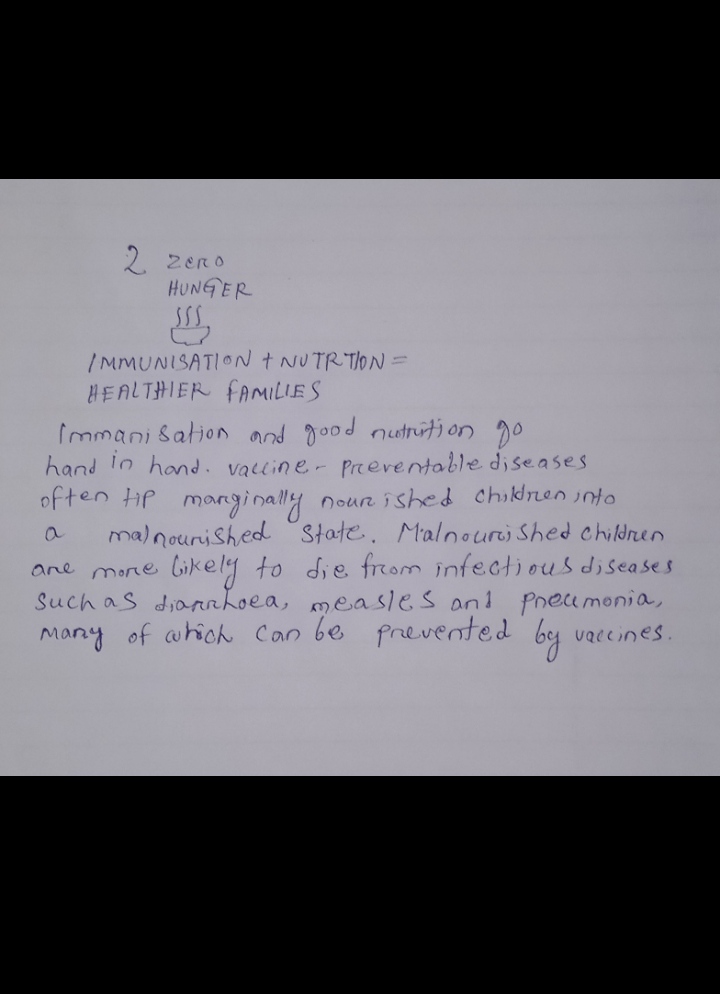 2 zero
HUNGER
IMMUNISATION + NUTRTION =
HEALTHIER FAMILIES
Immanisation and good nutrition go
hand in hand. vaccine - preventable diseases
often tip marginally nourished children into
a malnourished state. Malnourished children
are more likely to die from infectious diseases
such as diarrhoea, measles and pneumonia,
many of which can be prevented by vaccines.